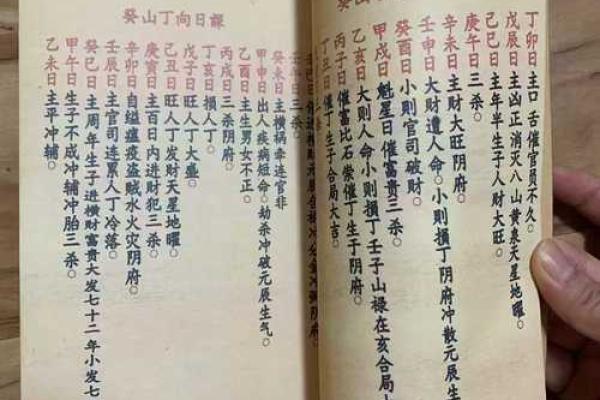 丁卯日主口舌催官員不久。
戊辰日主凶正消灭八山黄泉天星地曜。
己巳日主年半生子人財大旺。
庚午日三杀。
辛未日主財大旺阴府。
壬申日大財遭人命。小則損丁阴府冲散元辰生
癸酉日小則官司破財。
甲戌日魁星日催富贵三杀。
乙亥日大则人命小则損丁壬子山禄在亥合局大
丙子日催富比石崇催丁生于阴府。
丁丑日催丁生子合局大吉。
癸山丁向日課
壬午日三杀。
主横祸牵连官非
甲申日出人疾病短命。劫杀冲破元辰生气。
乙酉日主生男女不正。
丙戌日三杀阴府。
丁亥日損人丁。
戊子日旺人丁大盛。
己丑日旺人丁发財天星地曜。
庚寅日主百日内進財犯三杀。
辛卯日自缢瘟疫盗贼水火灾阴府。
壬辰日主官司连累人丁冷落。
癸巳日主周年生子進横財富贵大发七十二年小发七
甲午日生子不成冲輔冲胎三杀。
乙未日主平冲輔。